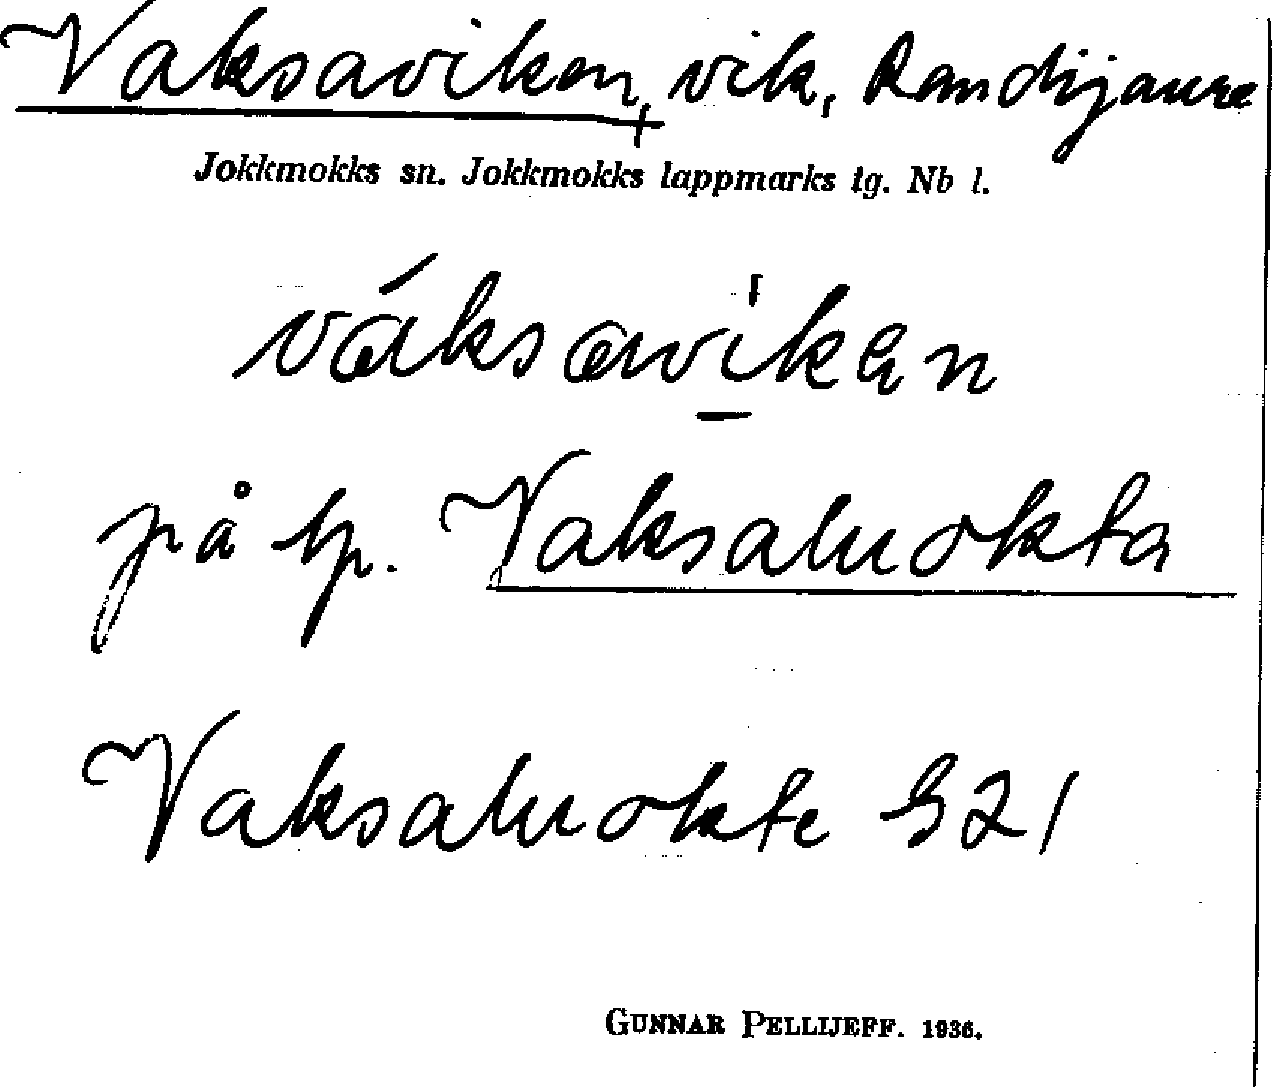 Vaksaviken, vik, Randijaure
Jokkmokks sn. Jokkmokks lappmarks tg. Nb l.
váksavikɛn
på lp. Vaksaluokta
Vaksaluokte S21
GUNNAR PELLIJEFF. 1936.